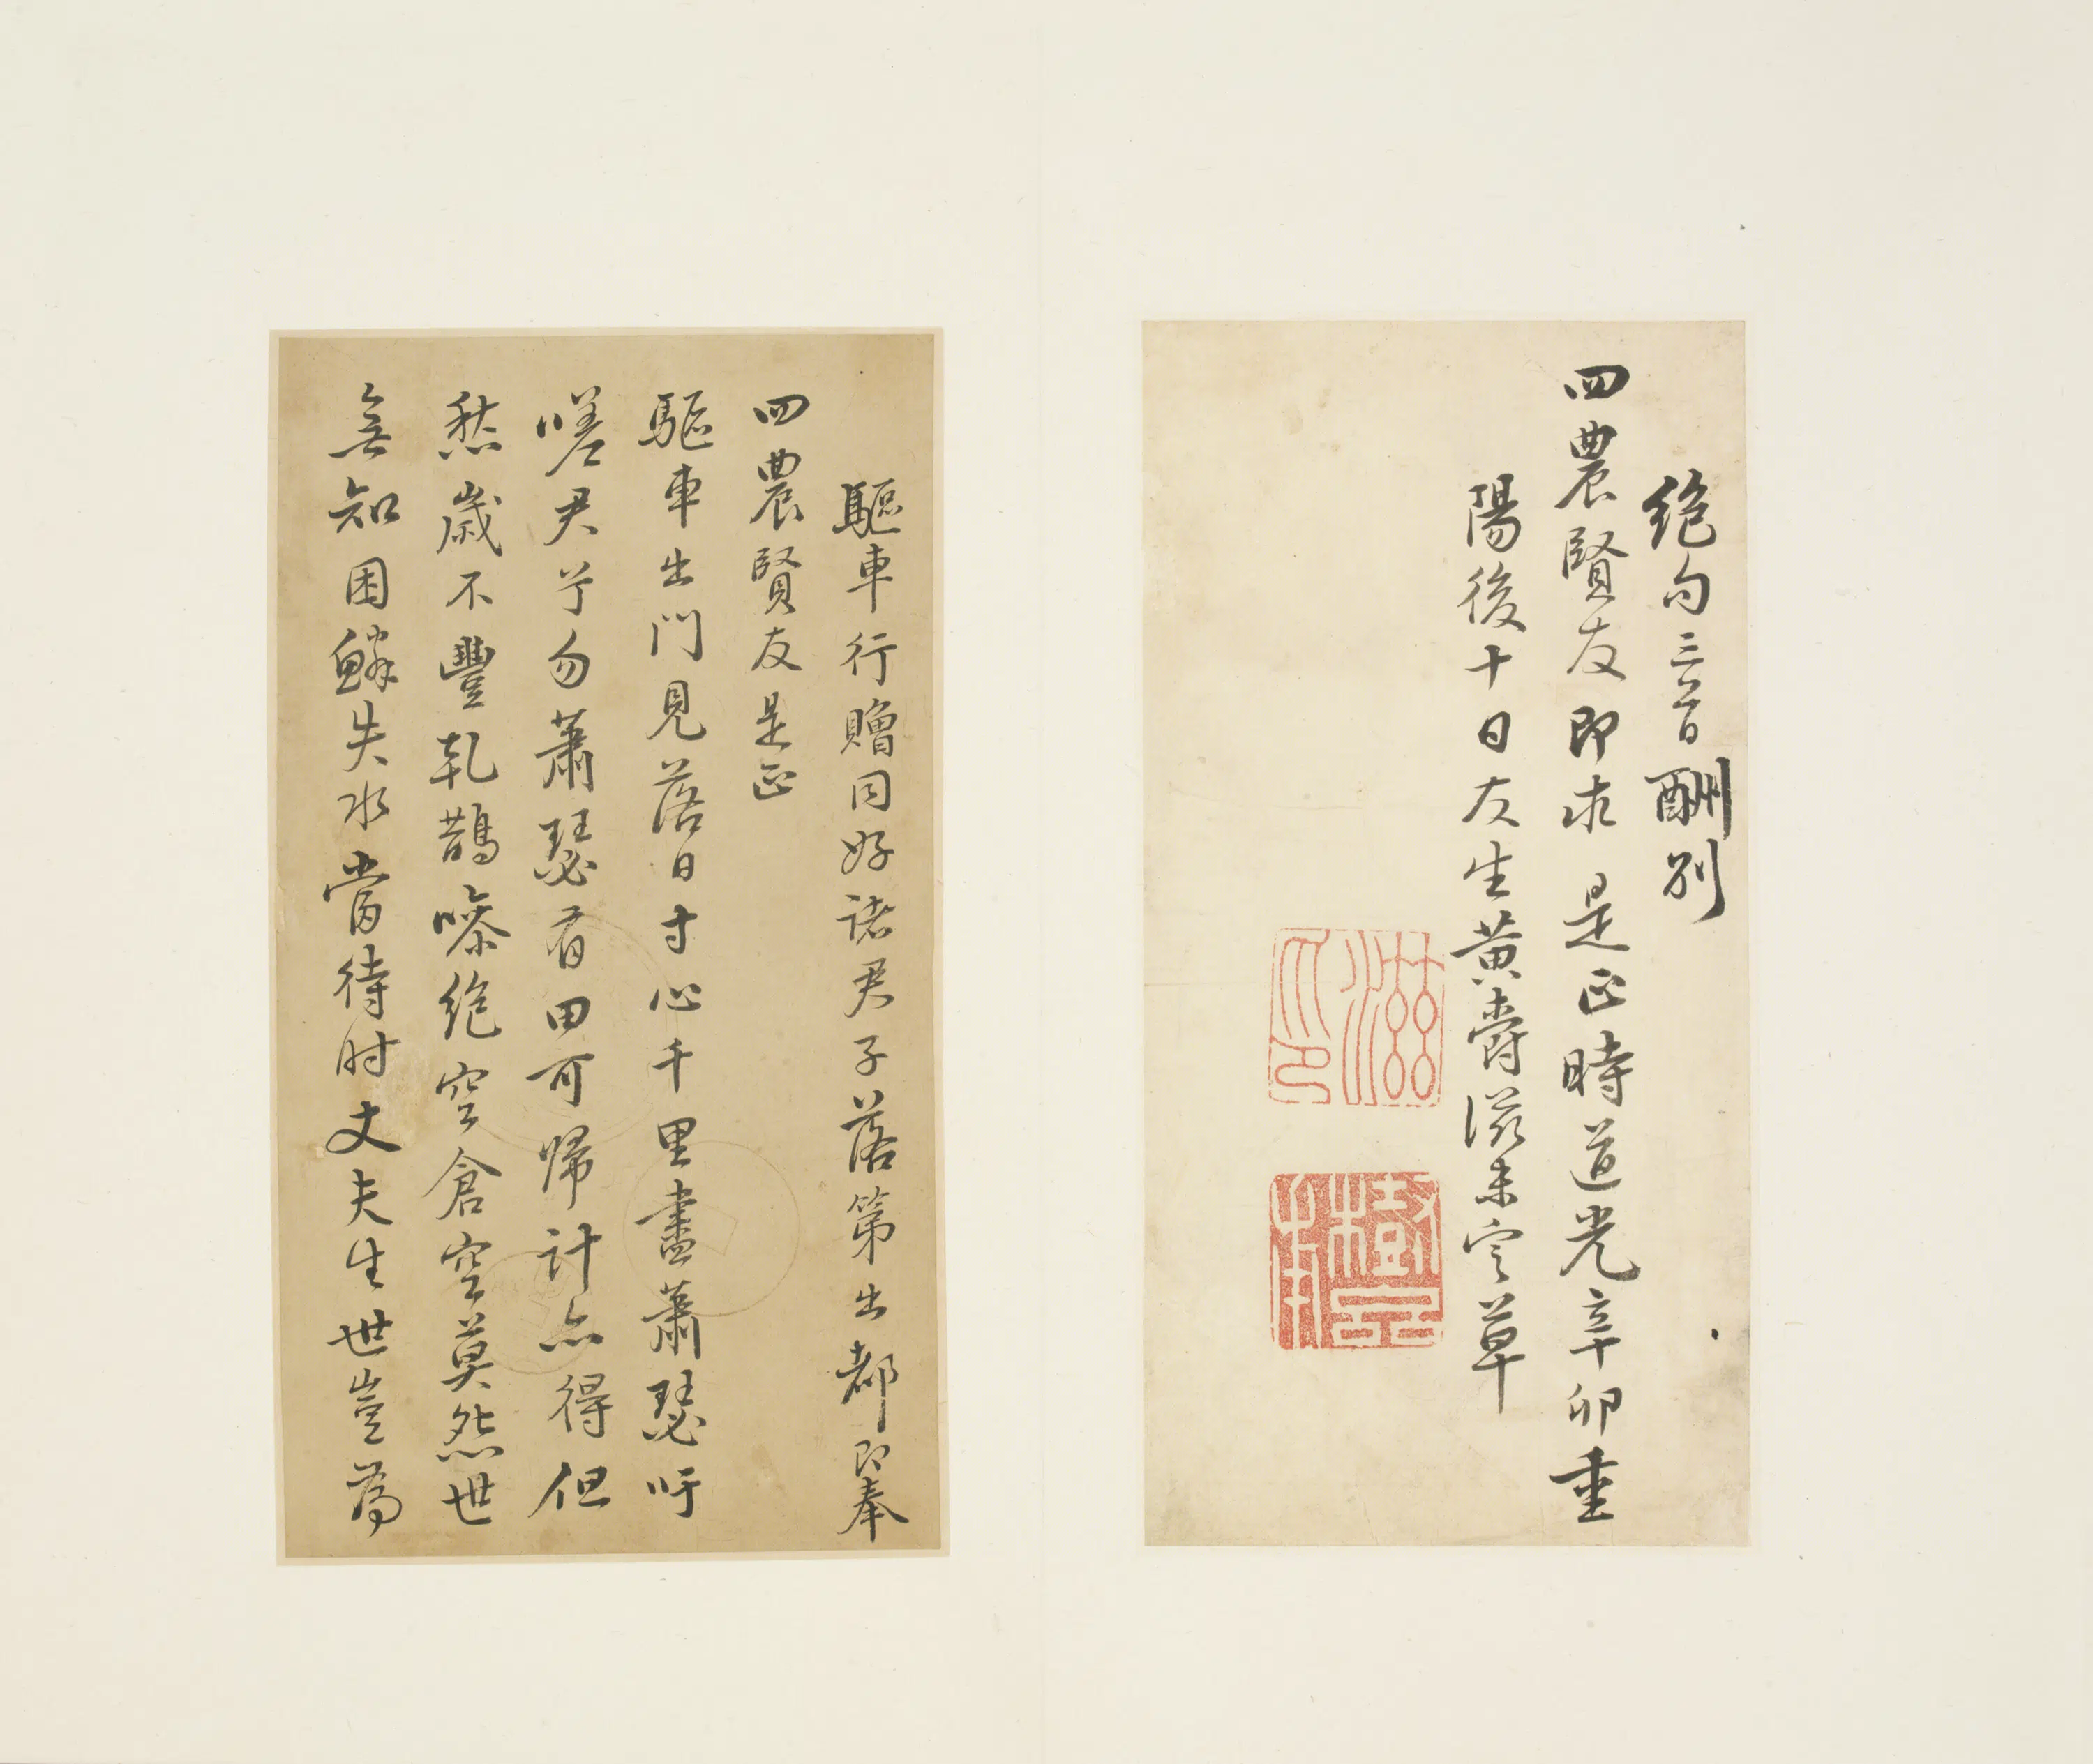 絶句三首酬別
四農賢友即求是正時道光辛卯重
陽後十日友生黃爵滋未定草
滋印
樹齋
驅車行贈同好諸君子落第出都即奉
四農賢友是正
驅車出門見落日寸心千里盡蕭瑟吁
嗟君兮勿蕭瑟有田可歸計亦得但
愁歲不豐乳鵲噪絶空倉空莫怨世
無知困鱗失水當待时丈夫生世豈為